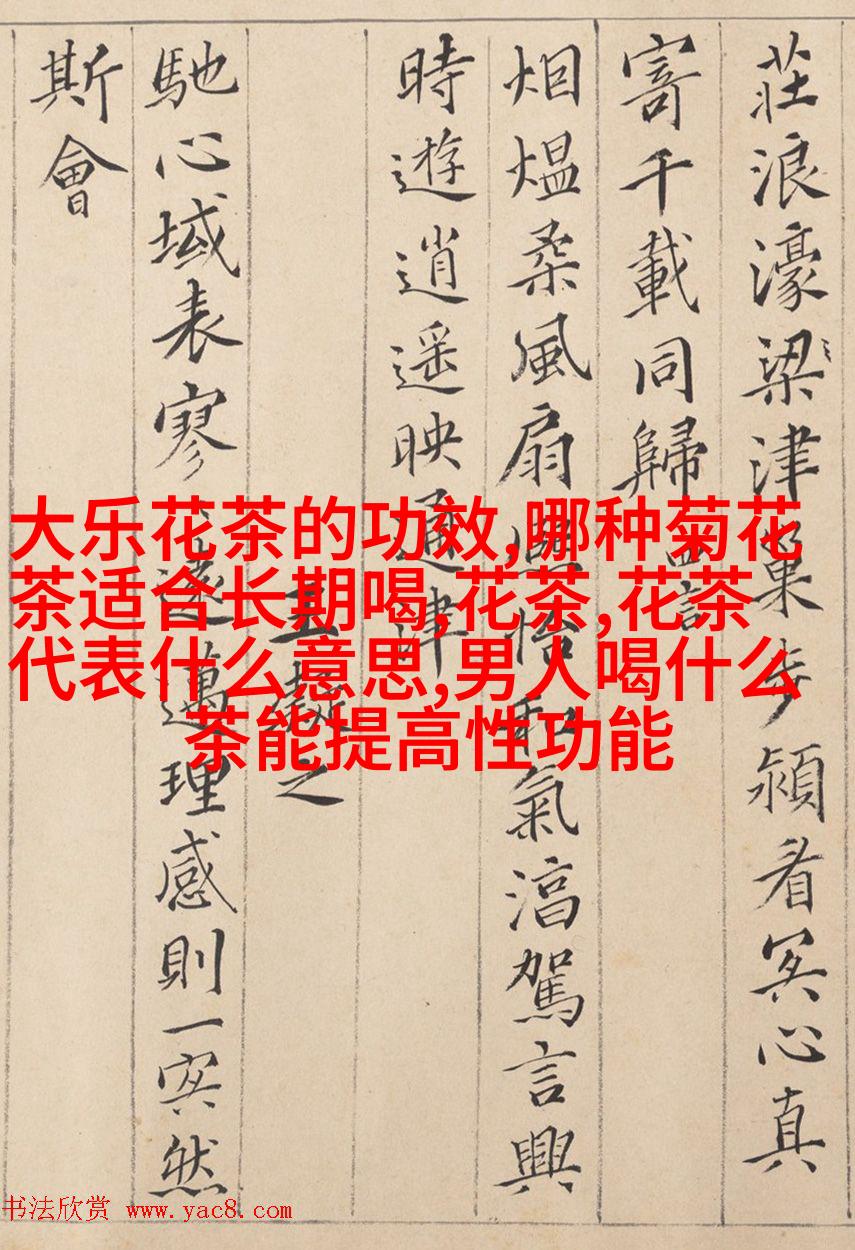 莊浪濠梁津巢步潁看冥心真
寄千載同歸
烟煴柔風扇 和氣湻駕言興
時遊逍遥映通津
王凝之
馳心域表寥 遠邁理感則一冥然
斯會
大乐花茶的功效,哪种菊花
茶适合长期喝,花茶,花茶
代表什么意思,男人喝什么
茶能提高性功能
书法欣赏 www.yac8.com